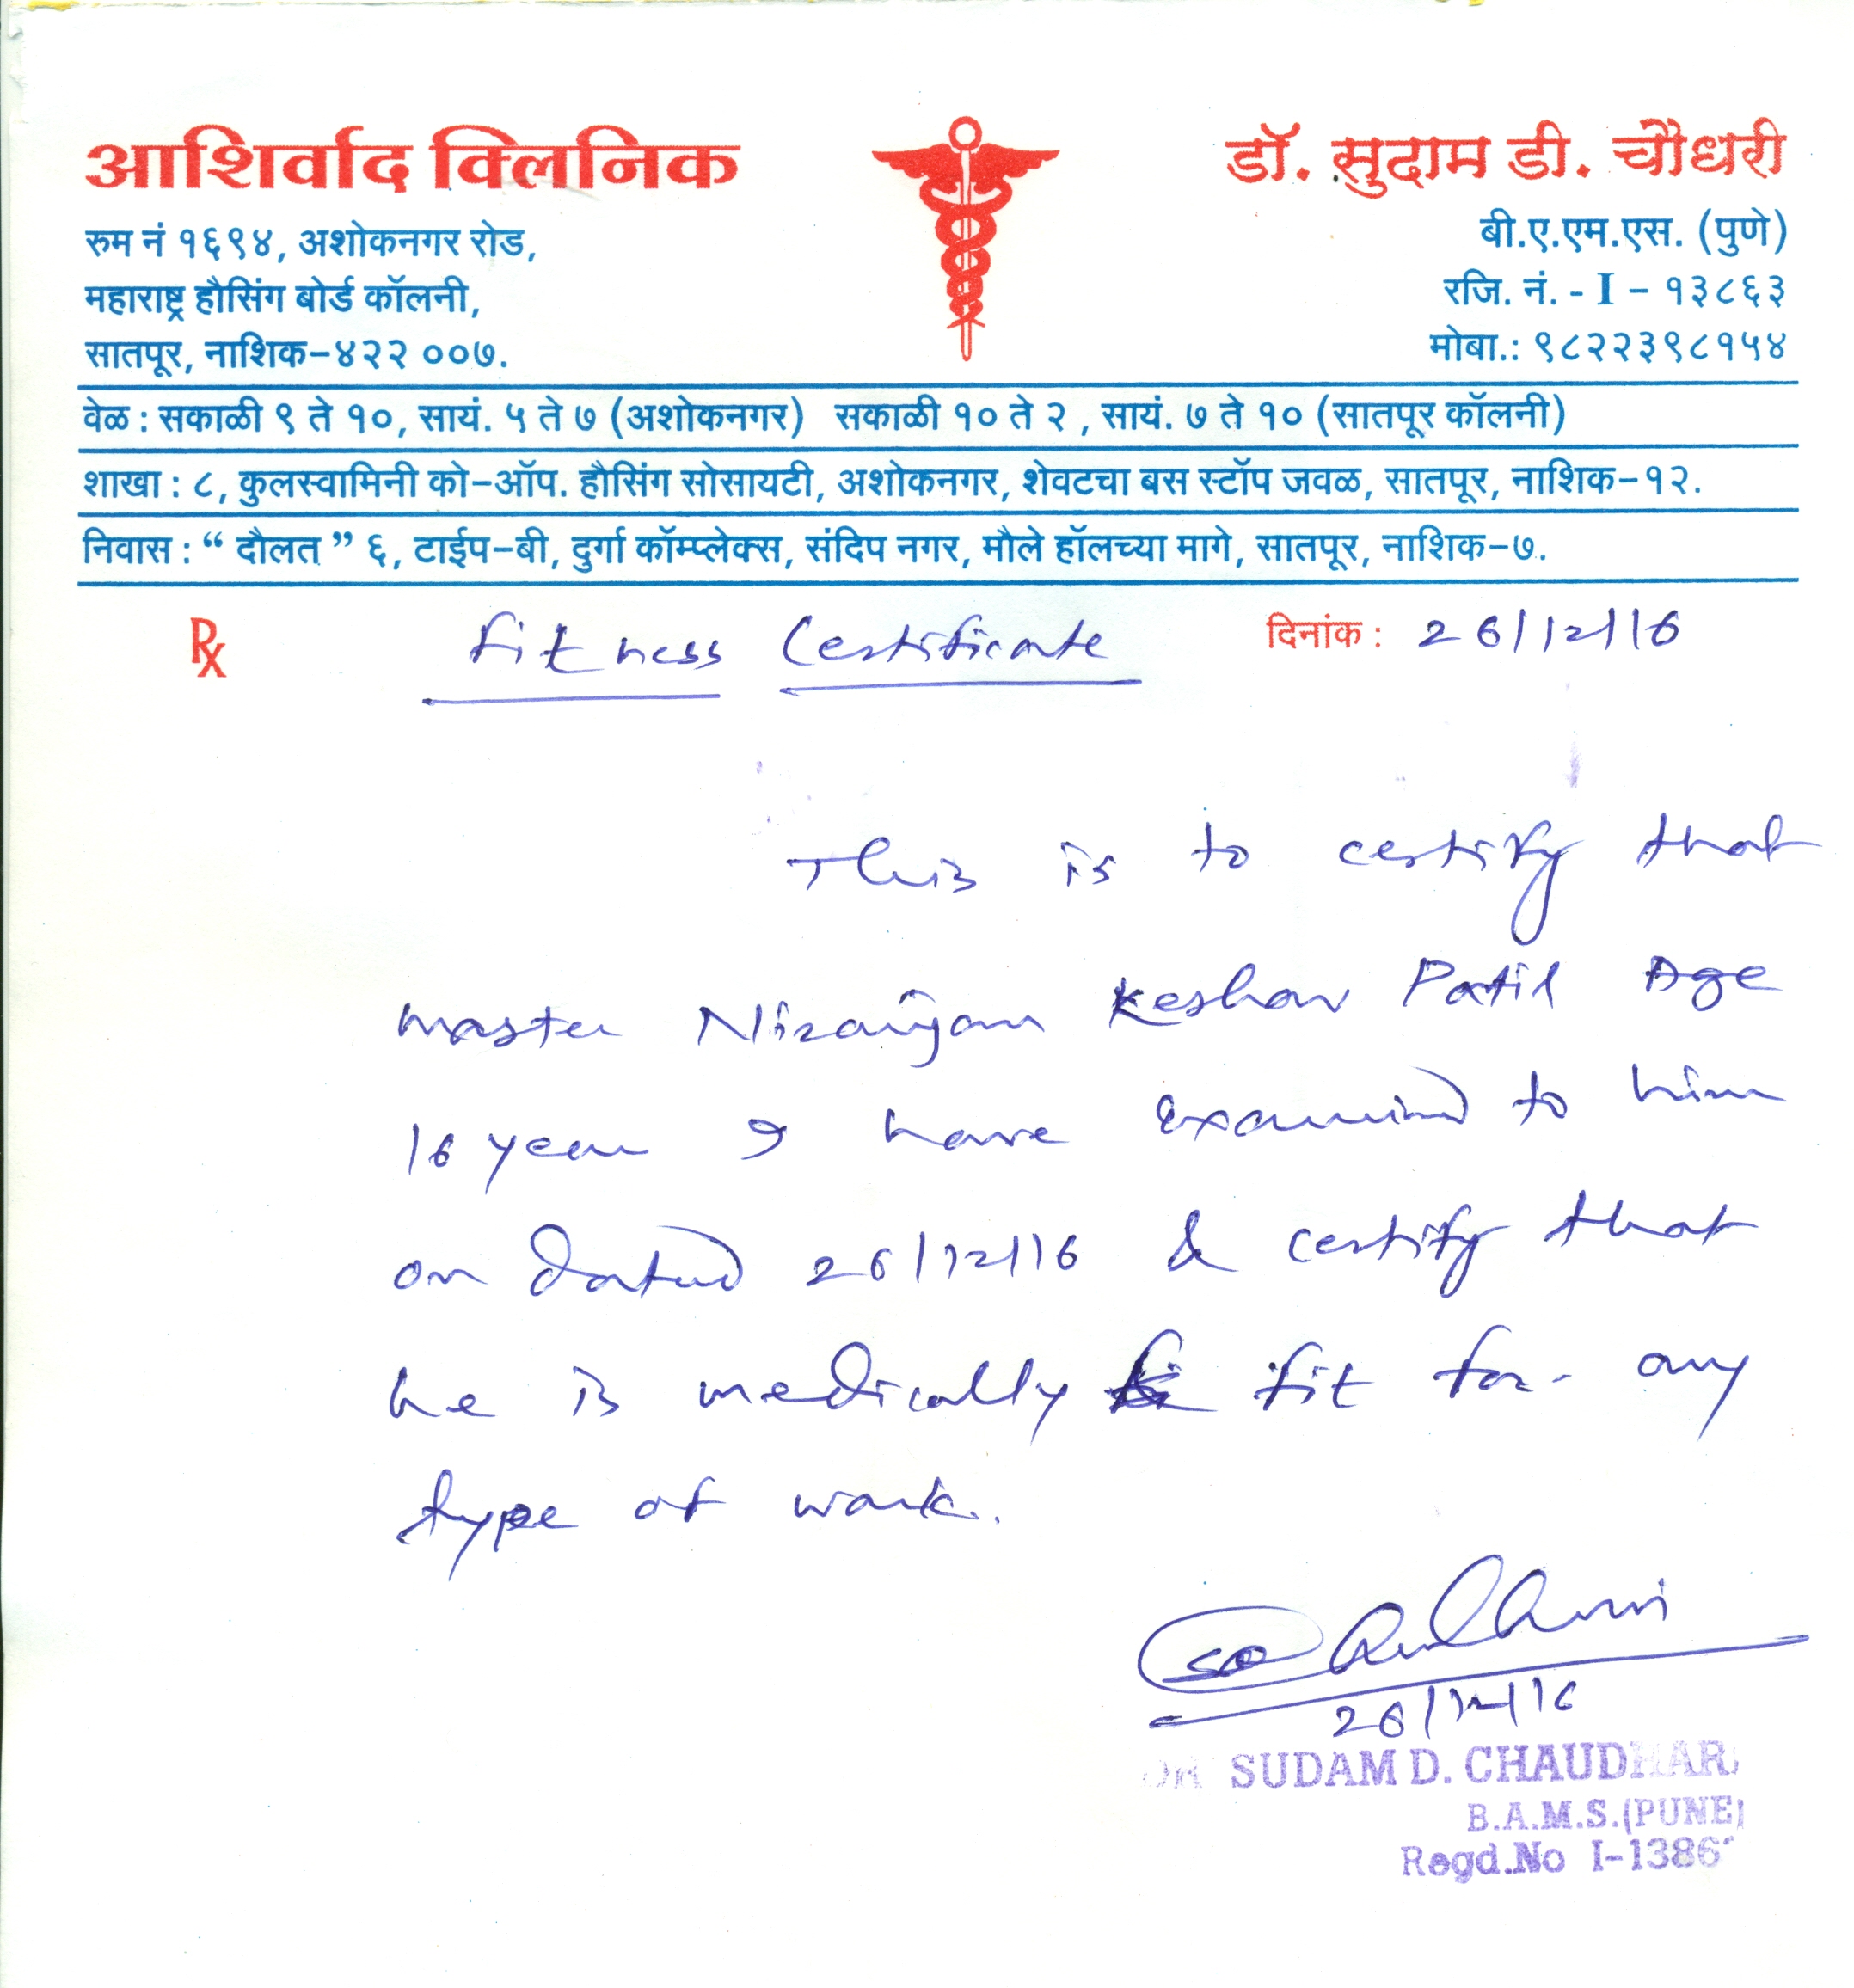 आशिर्वाद क्लिनिक
डॉ. सुदाम डी. चौधरी
रुम नं १६९४, अशोकनगर रोड,
महाराष्ट्र हौसिंग बोर्ड कॉलनी,
सातपूर, नाशिक-४२२ ००७.
बी.ए.एम.एस. (पुणे)
रजि. नं. - I - १३८६३
मोबा.: ९८२२३९८१५४
वेळ : सकाळी ९ ते १०, सायं. ५ ते ७ (अशोकनगर) सकाळी १० ते २ , सायं. ७ ते १० (सातपूर कॉलनी)
शाखा : ८, कुलस्वामिनी को-ऑप. हौसिंग सोसायटी, अशोकनगर, शेवटचा बस स्टॉप जवळ, सातपूर, नाशिक-१२.
निवास : “ दौलत ” ६, टाईप-बी, दुर्गा कॉम्प्लेक्स, संदिप नगर, मौले हॉलच्या मागे, सातपूर, नाशिक-७.
Rx Fitness Certificate दिनांक : 26/12/16
This is to certify that
master Niranjan Keshav Patil Age
16 year I have examined to him
on dated 26/12/16 & certify that
he is medically fit for any
type of work.
26/12/16
DR SUDAM D. CHAUDHARI
B.A.M.S.(PUNE)
Regd.No I-1386